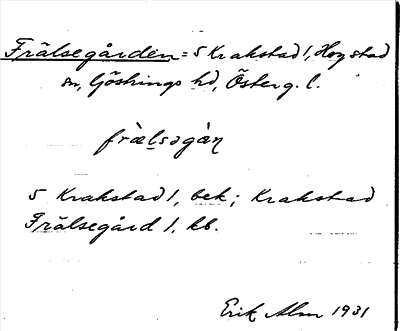 Frälsegården = S Krakstad 1, Hogstad
sn, Göstrings hd, Österg. l.
frälsəgàṇ
S Krakstad 1, bek; Krakstad
Frälsegård 1. kb.
Erik Alm 1931